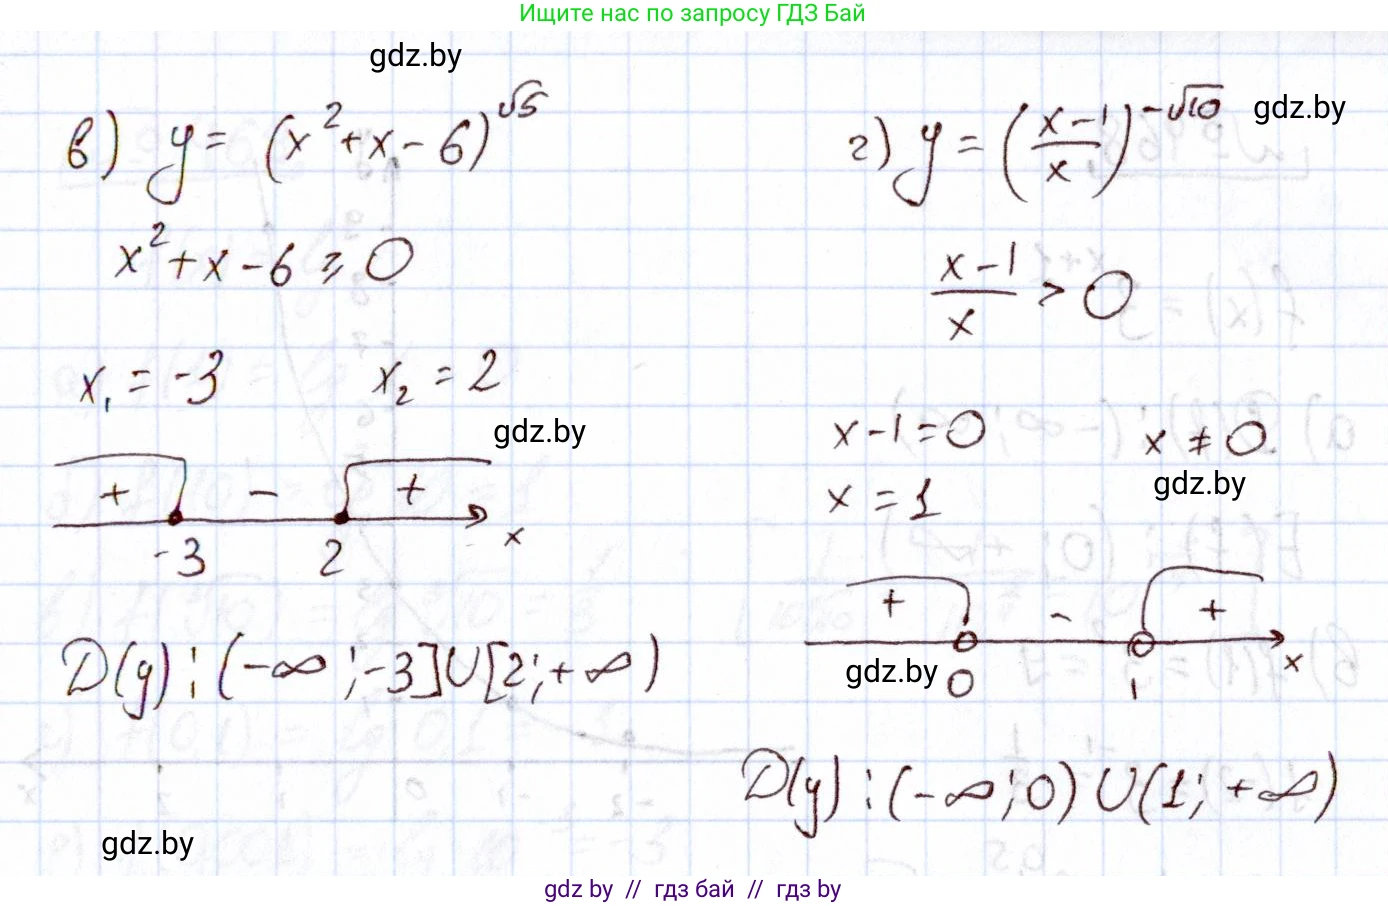 Ищите нас по запросу ГДЗ Бай
gdz.by
в) y = (x² + x - 6)^√5
x² + x - 6 ⩾ 0
x₁ = -3 x₂ = 2
gdz.by
+ - +
-3 2 x
D(y): (-∞; -3] ∪ [2; +∞)
gdz.by
г) y = ((x-1)/x)^-√10
gdz.by
(x-1)/x > 0
x - 1 = 0 x ≠ 0
x = 1
gdz.by
+ - +
0 1 x
gdz.by
D(y): (-∞; 0) ∪ (1; +∞)
gdz by // гдз бай // гдз by